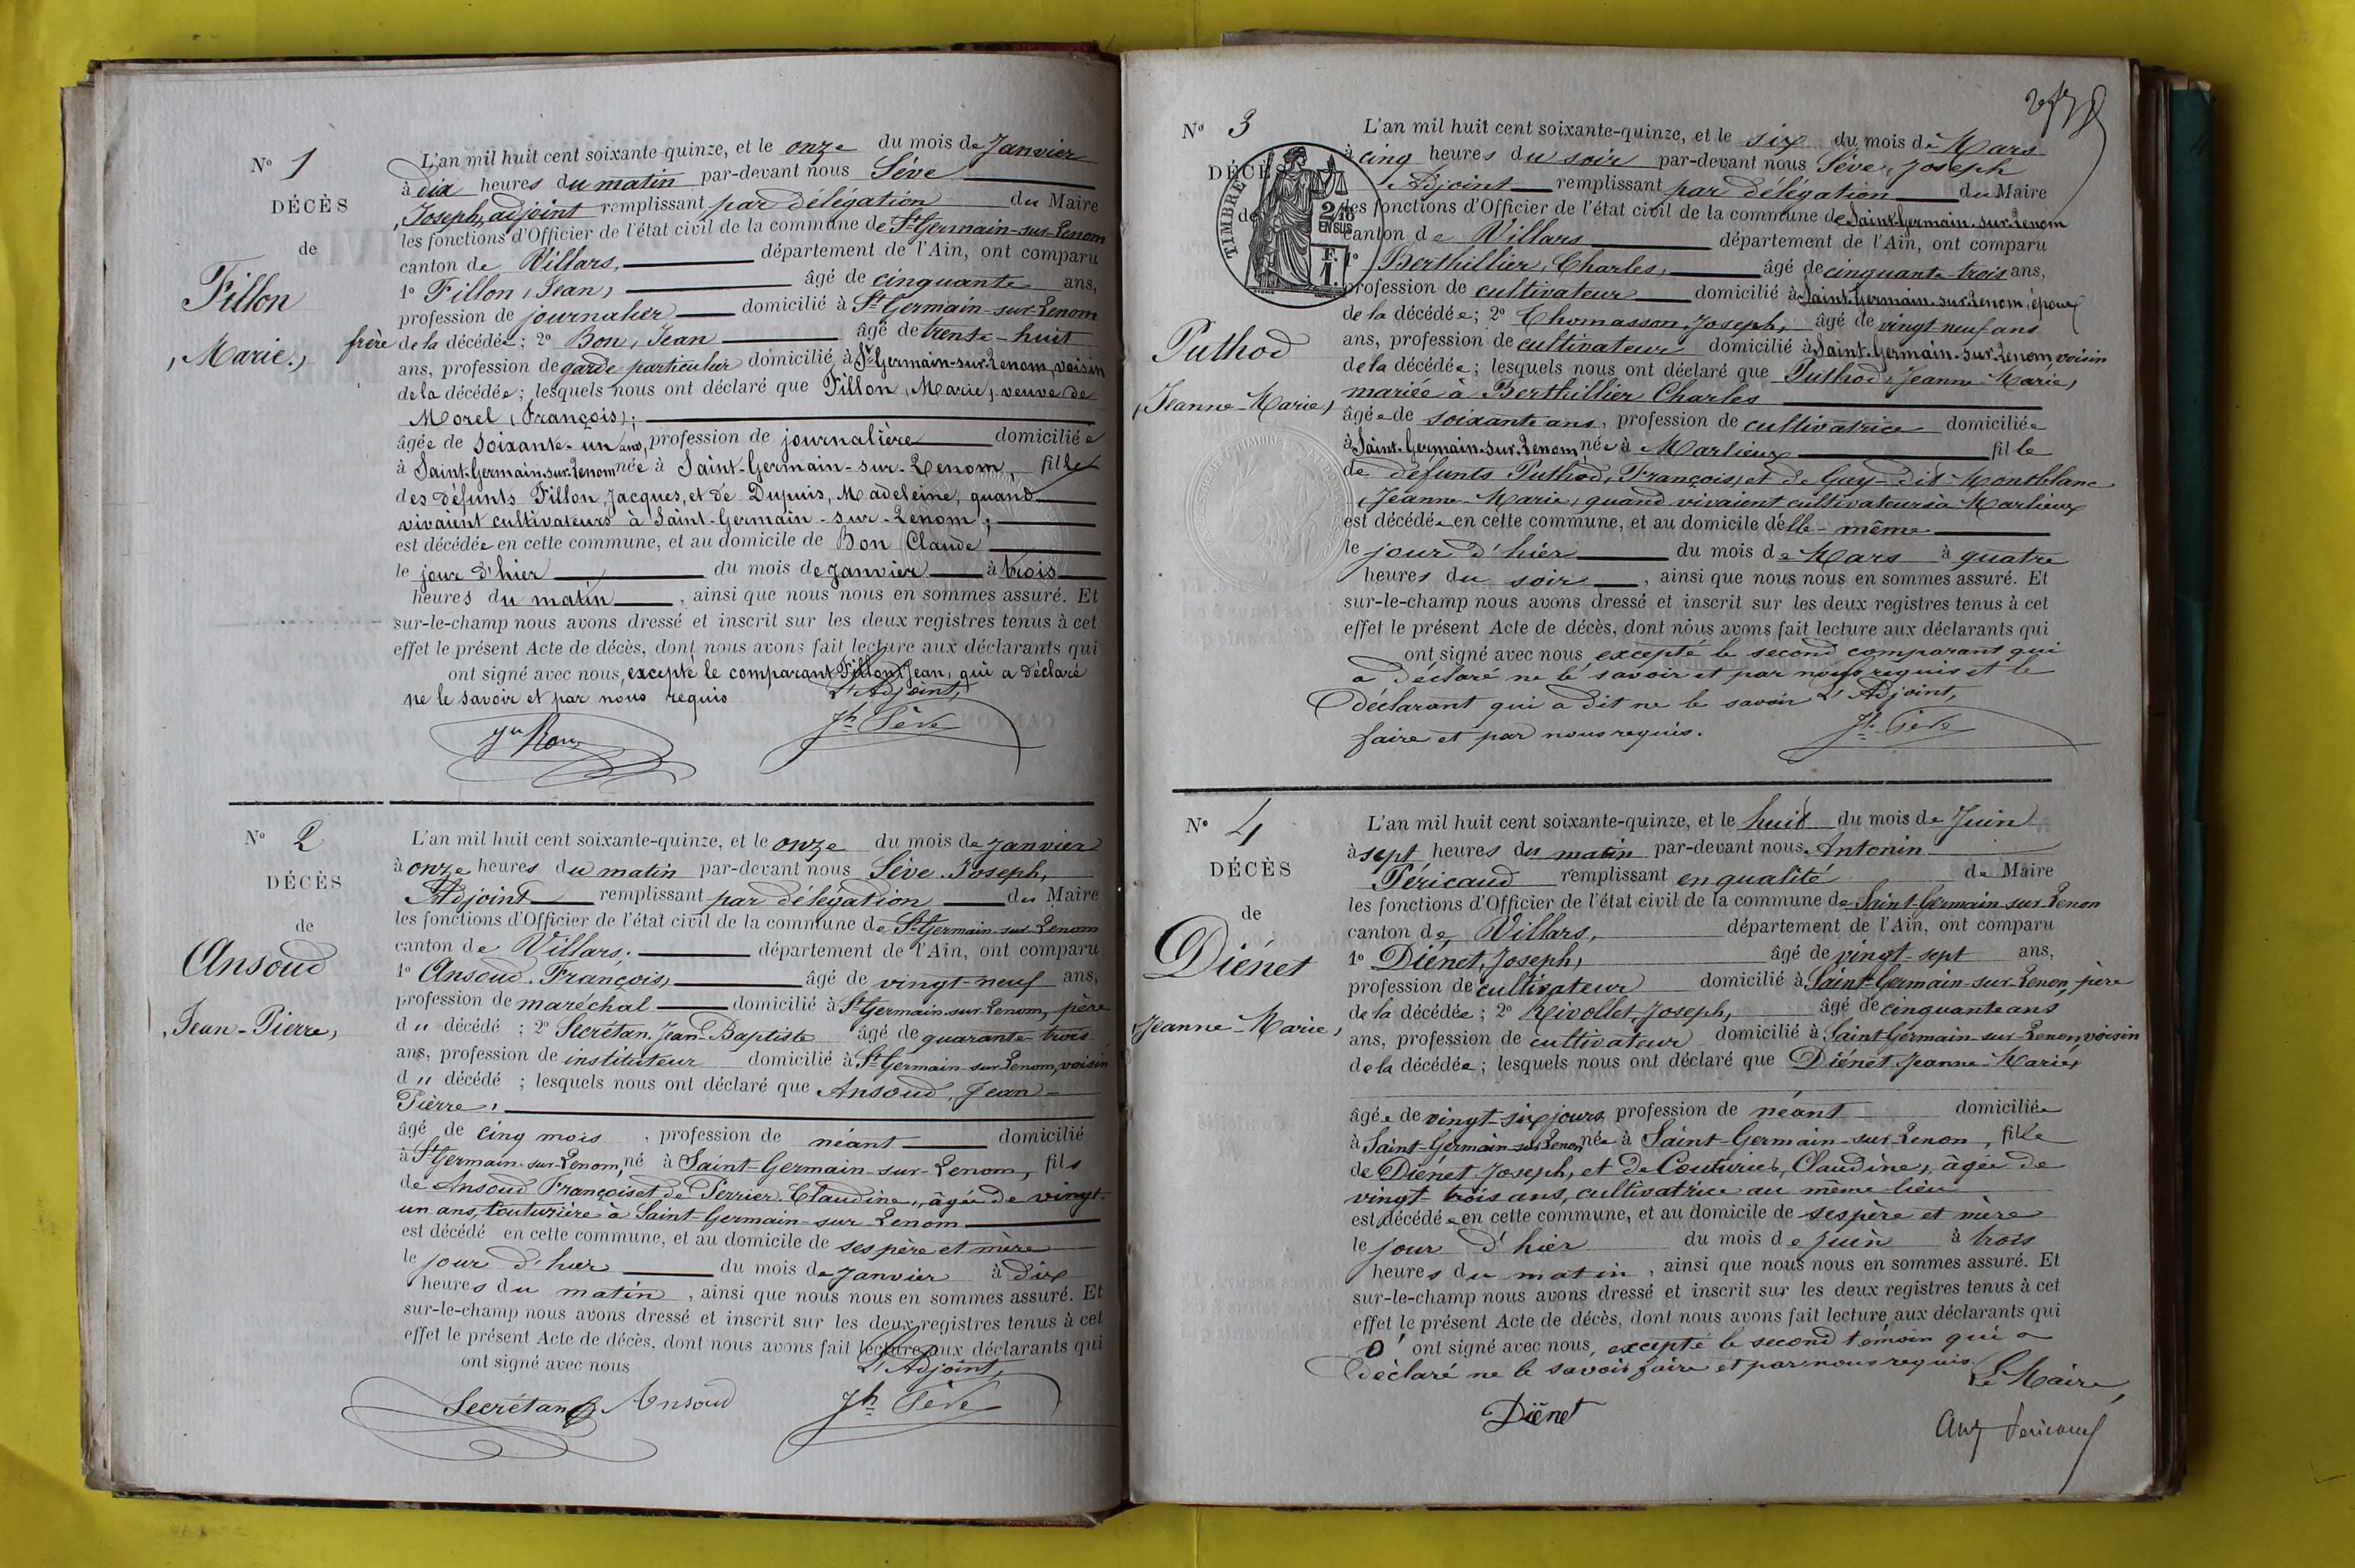 N° 1
DÉCÈS
de
Fillon
(Marie.)
L'an mil huit cent soixante-quinze, et le onze du mois de Janvier
à dix heures du matin par-devant nous Sève
(Joseph) adjoint remplissant par délégation du Maire
les fonctions d'Officier de l'état civil de la commune de St Germain-sur-Renom
canton de Villars, département de l'Ain, ont comparu
1° Fillon (Jean) âgé de cinquante ans,
profession de journalier domicilié à St Germain-sur-Renom
frère de la décédée; 2° Bon, Jean âgé de trente-huit
ans, profession de garde particulier domicilié à St Germain-sur-Renom, voisin
de la décédée; lesquels nous ont déclaré que Fillon (Marie) veuve de
Morel (François);
âgée de soixante-un ans, profession de journalière domiciliée
à Saint-Germain-sur-Renom née à Saint-Germain-sur-Renom, fille
des défunts Fillon, Jacques, et de Dupuis, Madeleine, quand
vivaient cultivateurs à Saint-Germain-sur-Renom;
est décédée en cette commune, et au domicile de Bon Claude
le jour d'hier du mois de Janvier à trois
heures du matin, ainsi que nous nous en sommes assuré. Et
sur-le-champ nous avons dressé et inscrit sur les deux registres tenus à cet
effet le présent Acte de décès, dont nous avons fait lecture aux déclarants qui
ont signé avec nous, excepté le comparant Fillon Jean, qui a déclaré
ne le savoir et par nous requis L'Adjoint,
Jn Bon Jh Sève
N° 2
DÉCÈS
de
Ansoud
(Jean-Pierre)
L'an mil huit cent soixante-quinze, et le onze du mois de Janvier
à onze heures du matin par-devant nous Sève Joseph,
Adjoint remplissant par délégation du Maire
les fonctions d'Officier de l'état civil de la commune de St Germain-sur-Renom
canton de Villars, département de l'Ain, ont comparu
1° Ansoud, François, âgé de vingt-neuf ans,
profession de maréchal domicilié à St Germain-sur-Renom, père
du décédé; 2° Secrétan, Jean-Baptiste âgé de quarante-trois
ans, profession de instituteur domicilié à St Germain-sur-Renom, voisin
du décédé; lesquels nous ont déclaré que Ansoud, Jean-
Pierre,
âgé de cinq mois, profession de néant domicilié
à St Germain-sur-Renom, né à Saint-Germain-sur-Renom, fils
de Ansoud François et de Perrier Claudine, âgée de vingt-
un ans, couturière à Saint-Germain-sur-Renom
est décédé en cette commune, et au domicile de ses père et mère
le jour d'hier du mois de Janvier à dix
heures du matin, ainsi que nous nous en sommes assuré. Et
sur-le-champ nous avons dressé et inscrit sur les deux registres tenus à cet
effet le présent Acte de décès, dont nous avons fait lecture aux déclarants qui
ont signé avec nous L'Adjoint,
Secrétan Ansoud Jh Sève
N° 3
DÉCÈS
de
TIMBRE
2/10 EN SUS
F. 1.
Puthod
(Jeanne-Marie)
L'an mil huit cent soixante-quinze, et le six du mois de Mars
à cinq heures du soir par-devant nous Sève, Joseph
Adjoint remplissant par délégation du Maire
les fonctions d'Officier de l'état civil de la commune de Saint-Germain-sur-Renom
canton de Villars département de l'Ain, ont comparu
1° Berthillier, Charles, âgé de cinquante-trois ans,
profession de cultivateur domicilié à Saint-Germain-sur-Renom, époux
de la décédée; 2° Thomasson, Joseph, âgé de vingt-neuf ans
ans, profession de cultivateur domicilié à Saint-Germain-sur-Renom, voisin
de la décédée; lesquels nous ont déclaré que Puthod, Jeanne-Marie,
mariée à Berthillier Charles
âgée de soixante ans, profession de cultivatrice domiciliée
à Saint-Germain-sur-Renom, née à Marlieux fille
de défunts Puthod, François, et de Gay-dit-Montblanc
(Jeanne-Marie) quand vivaient cultivateurs à Marlieux
est décédée en cette commune, et au domicile d'elle-même
le jour d'hier du mois de Mars à quatre
heures du soir, ainsi que nous nous en sommes assuré. Et
sur-le-champ nous avons dressé et inscrit sur les deux registres tenus à cet
effet le présent Acte de décès, dont nous avons fait lecture aux déclarants qui
ont signé avec nous excepté le second comparant qui
a déclaré ne le savoir et par nous requis et le
déclarant qui a dit ne le savoir L'Adjoint,
faire et par nous requis. Jh Sève
N° 4
DÉCÈS
de
Diénet
(Jeanne-Marie)
L'an mil huit cent soixante-quinze, et le huit du mois de Juin
à sept heures du matin par-devant nous Antonin
Péricaud remplissant en qualité de Maire
les fonctions d'Officier de l'état civil de la commune de Saint-Germain-sur-Renon
canton de Villars, département de l'Ain, ont comparu
1° Diénet, Joseph, âgé de vingt-sept ans,
profession de cultivateur domicilié à Saint-Germain-sur-Renon, père
de la décédée; 2° Rivollet, Joseph, âgé de cinquante ans
ans, profession de cultivateur domicilié à Saint-Germain-sur-Renon, voisin
de la décédée; lesquels nous ont déclaré que Diénet, Jeanne-Marie,
âgée de vingt-six jours profession de néant domiciliée
à Saint-Germain-sur-Renon, née à Saint-Germain-sur-Renon, fille
de Diénet, Joseph, et de Couturier, Claudine, âgée de
vingt-trois ans, cultivatrice au même lieu
est décédée en cette commune, et au domicile de ses père et mère
le jour d'hier du mois de Juin à trois
heures du matin, ainsi que nous nous en sommes assuré. Et
sur-le-champ nous avons dressé et inscrit sur les deux registres tenus à cet
effet le présent Acte de décès, dont nous avons fait lecture aux déclarants qui
ont signé avec nous, excepté le second témoin qui a
déclaré ne le savoir faire et par nous requis. Le Maire,
Diénet Ant Péricaud